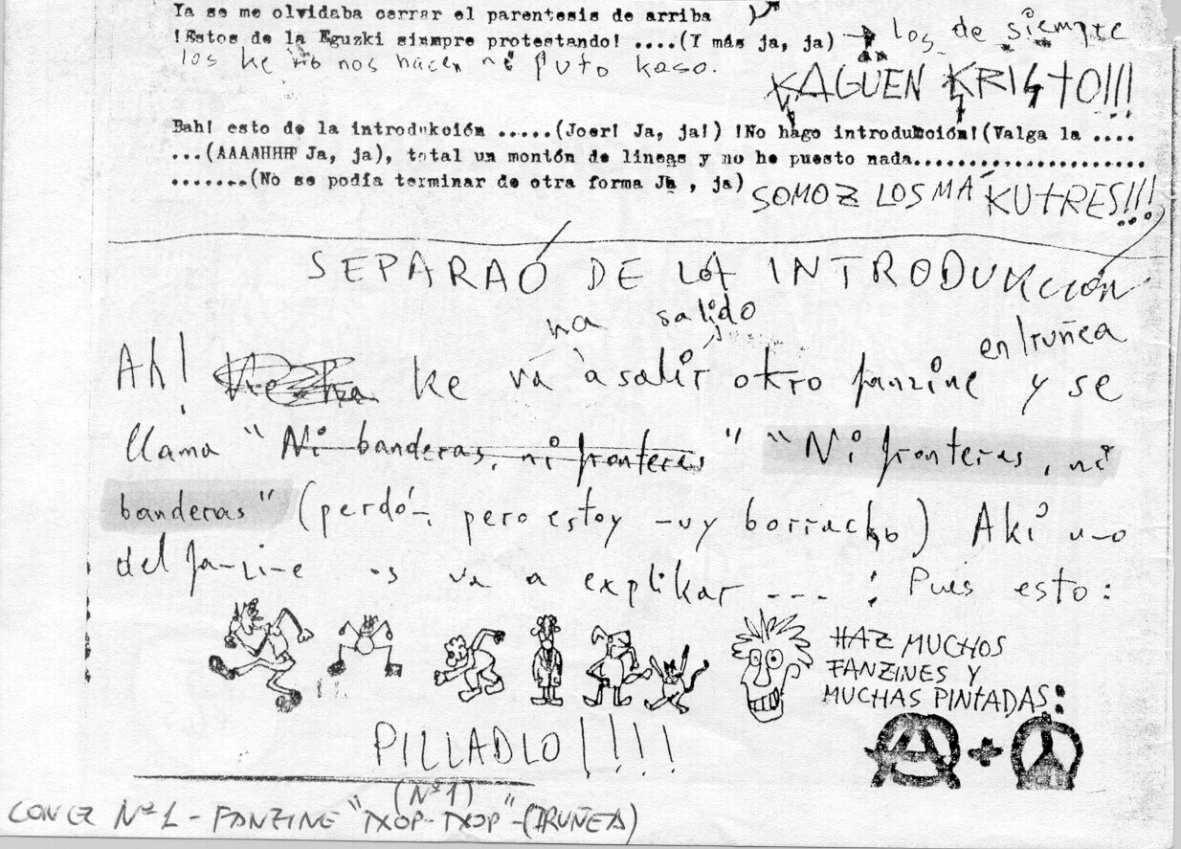 Ya se me olvidaba cerrar el parentesis de arriba )
!Estos de la Eguzki siempre protestando! ....(Y más ja, ja) → los de siempre
los ke no nos hacen ni puto kaso.
KAGUEN KRISTO!!!
Bah! esto de la introdukción .....(Joer! Ja, ja!) !No hago introdukción!(Valga la ....
...(AAAAHHH Ja, ja), total un montón de lineas y no he puesto nada......................
.......(No se podía terminar de otra forma Ja , ja)
SOMOZ LOS MÁ KUTRES!!!
SEPARAO DE LA INTRODUKción
ha salido
en Iruñea
Ah! ke va a salir otro fanzine y se
llama "Ni banderas, ni fronteras" "Ni fronteras, ni
banderas" (perdón, pero estoy muy borracho) Aki uno
del fanzine os va a explikar ---: Pues esto:
HAZ MUCHOS
FANZINES Y
MUCHAS PINTADAS:
A + 
PILLADLO!!!!
(Nº1)
Nº 1 - FANZINE "TXOP-TXOP"-(IRUÑEA)